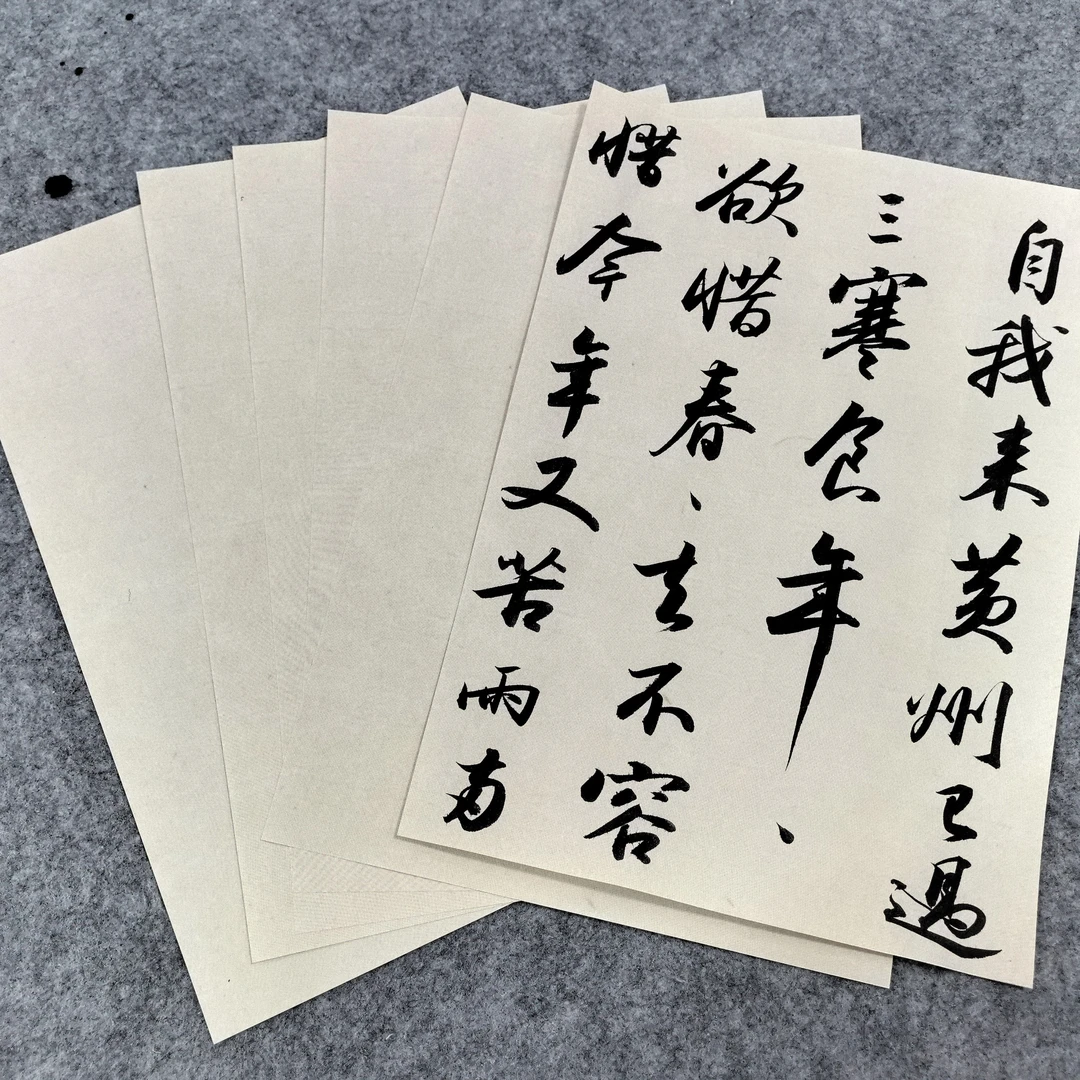 自我来黄州已過
三寒食年、
欲惜春、去不容
惜今年又苦雨两